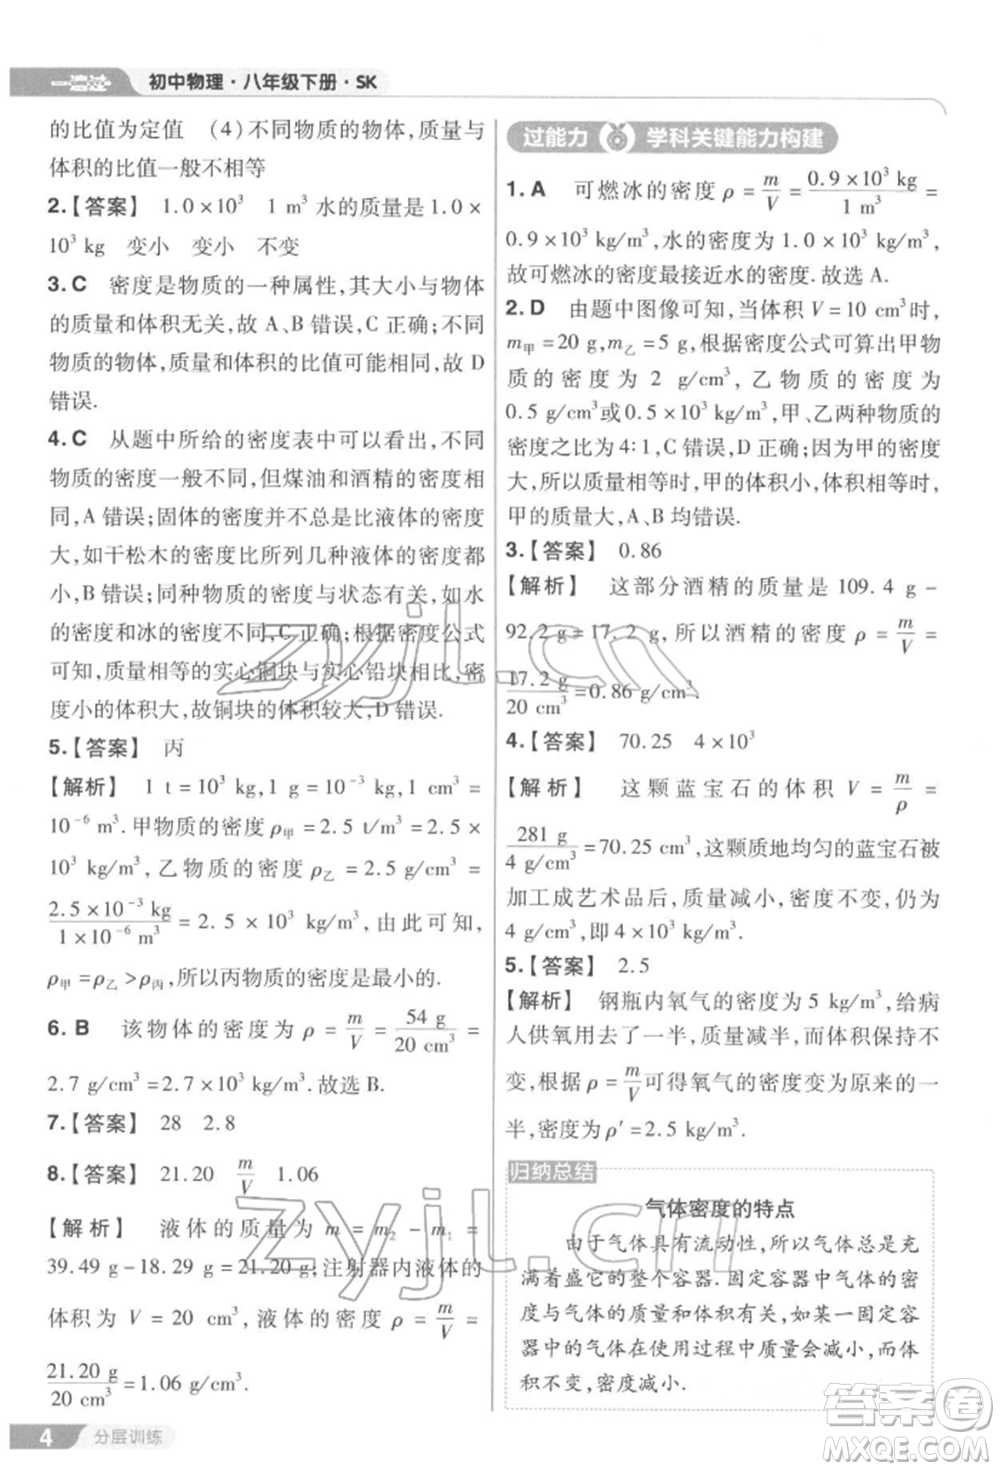 一遍过
初中物理·八年级下册·SK
的比值为定值 (4)不同物质的物体,质量与
体积的比值一般不相等
2.【答案】 1.0×10³ 1 m³ 水的质量是 1.0×
10³ kg 变小 变小 不变
3. C 密度是物质的一种属性,其大小与物体
的质量和体积无关,故 A、B 错误,C 正确;不同
物质的物体,质量和体积的比值可能相同,故 D
错误.
4. C 从题中所给的密度表中可以看出,不同
物质的密度一般不同,但煤油和酒精的密度相
同,A 错误;固体的密度并不总是比液体的密度
大,如干松木的密度比所列几种液体的密度都
小,B 错误;同种物质的密度与状态有关,如水
的密度和冰的密度不同,C 正确;根据密度公式
可知,质量相等的实心铜块与实心铅块相比,密
度小的体积大,故铜块的体积较大,D 错误.
5.【答案】 丙
【解析】 1 t=10³ kg,1 g=10⁻³ kg,1 cm³=
10⁻⁶ m³. 甲物质的密度 ρ甲=2.5 t/m³=2.5×
10³ kg/m³,乙物质的密度 ρ乙=2.5 g/cm³=
2.5×10⁻³ kg/1×10⁻⁶ m³=2.5×10³ kg/m³,由此可知,
ρ甲=ρ乙>ρ丙,所以丙物质的密度是最小的.
6. B 该物体的密度为 ρ=m/V=54 g/20 cm³=
2.7 g/cm³=2.7×10³ kg/m³. 故选 B.
7.【答案】 28 2.8
8.【答案】 21.20 m/V 1.06
【解析】 液体的质量为 m=m₂-m₁=
39.49 g-18.29 g=21.20 g;注射器内液体的
体积为 V=20 cm³,液体的密度 ρ=m/V=
21.20 g/20 cm³=1.06 g/cm³.
4 分层训练
过能力 学科关键能力构建
1. A 可燃冰的密度 ρ=m/V=0.9×10³ kg/1 m³=
0.9×10³ kg/m³,水的密度为 1.0×10³ kg/m³,
故可燃冰的密度最接近水的密度. 故选 A.
2. D 由题中图像可知,当体积 V=10 cm³时,
m甲=20 g,m乙=5 g;根据密度公式可算出甲物
质的密度为 2 g/cm³,乙物质的密度为
0.5 g/cm³或 0.5×10³ kg/m³,甲、乙两种物质的
密度之比为 4∶1,C 错误,D 正确;因为甲的密度
大,所以质量相等时,甲的体积小,体积相等时,
甲的质量大,A、B 均错误.
3.【答案】 0.86
【解析】 这部分酒精的质量是 109.4 g-
92.2 g=17.2 g,所以酒精的密度 ρ=m/V=
17.2 g/20 cm³=0.86 g/cm³.
4.【答案】 70.25 4×10³
【解析】 这颗蓝宝石的体积 V=m/ρ=
281 g/4 g/cm³=70.25 cm³;这颗质地均匀的蓝宝石被
加工成艺术品后,质量减小,密度不变,仍为
4 g/cm³,即 4×10³ kg/m³.
5.【答案】 2.5
【解析】 钢瓶内氧气的密度为 5 kg/m³,给病
人供氧用去了一半,质量减半,而体积保持不
变,根据 ρ=m/V可得氧气的密度变为原来的一
半,密度为 ρ′=2.5 kg/m³.
归纳总结
气体密度的特点
由于气体具有流动性,所以气体总是充
满着盛它的整个容器. 固定容器中气体的密
度与气体的质量和体积有关,如某一固定容
器中的气体在使用过程中质量减小,而体积
不变,密度减小.
zyjl.cn
zyjl.cn
答案圈
MXQE.COM